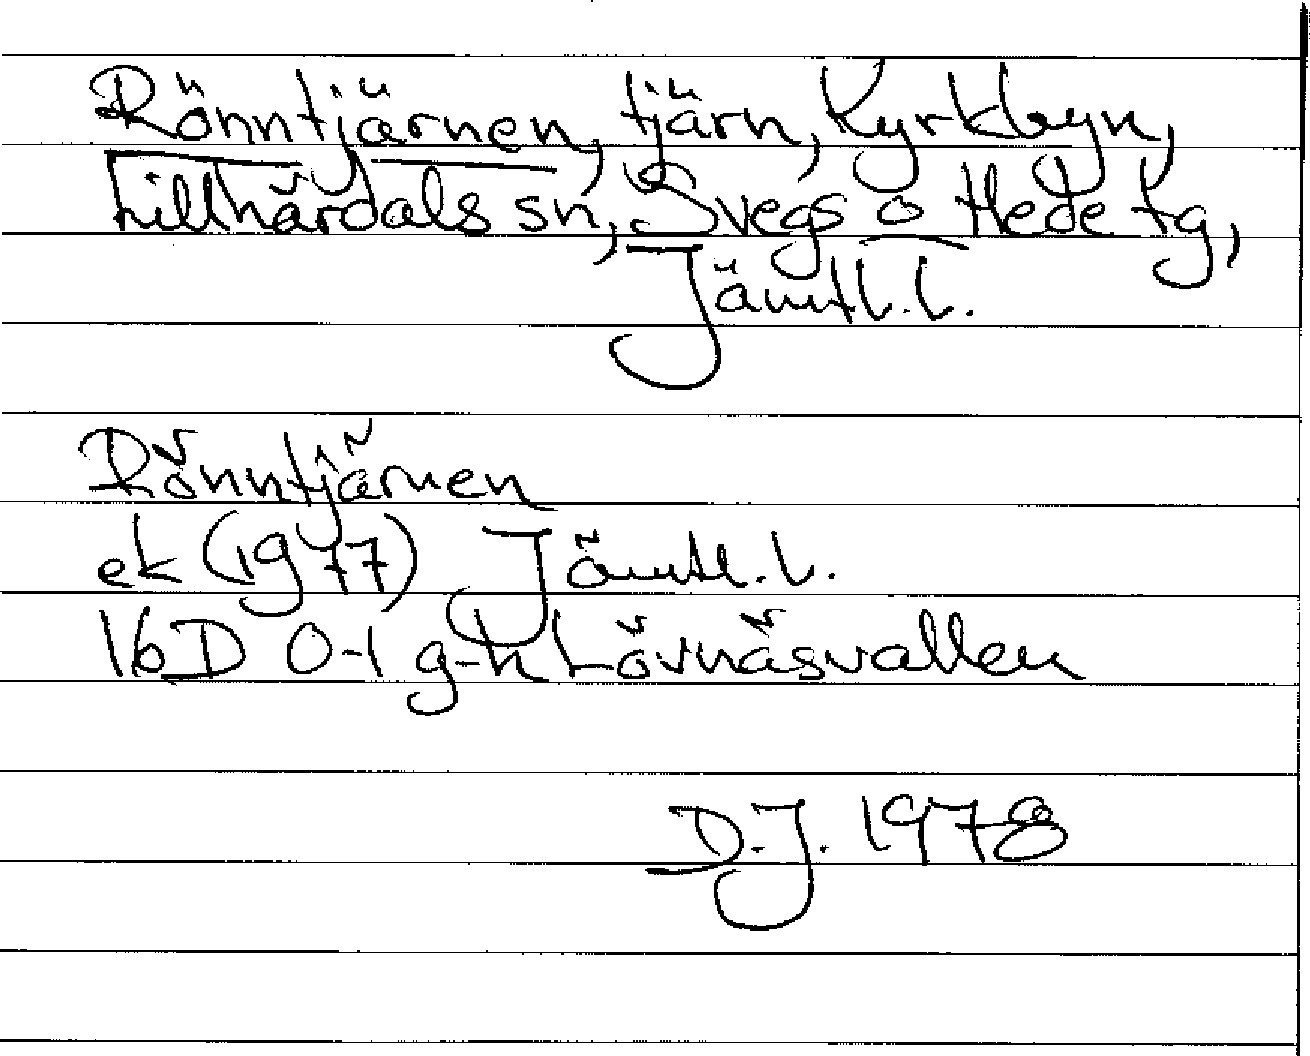 Rönntjärnen, tjärn, Kyrkbyn,
Lillhärdals sn, Svegs o Hede tg,
Jämtl. l.
Rönntjärnen
ek (1977) Jämtl. l.
16D 0-1 g-h Lövnäsvallen
D.J. 1978